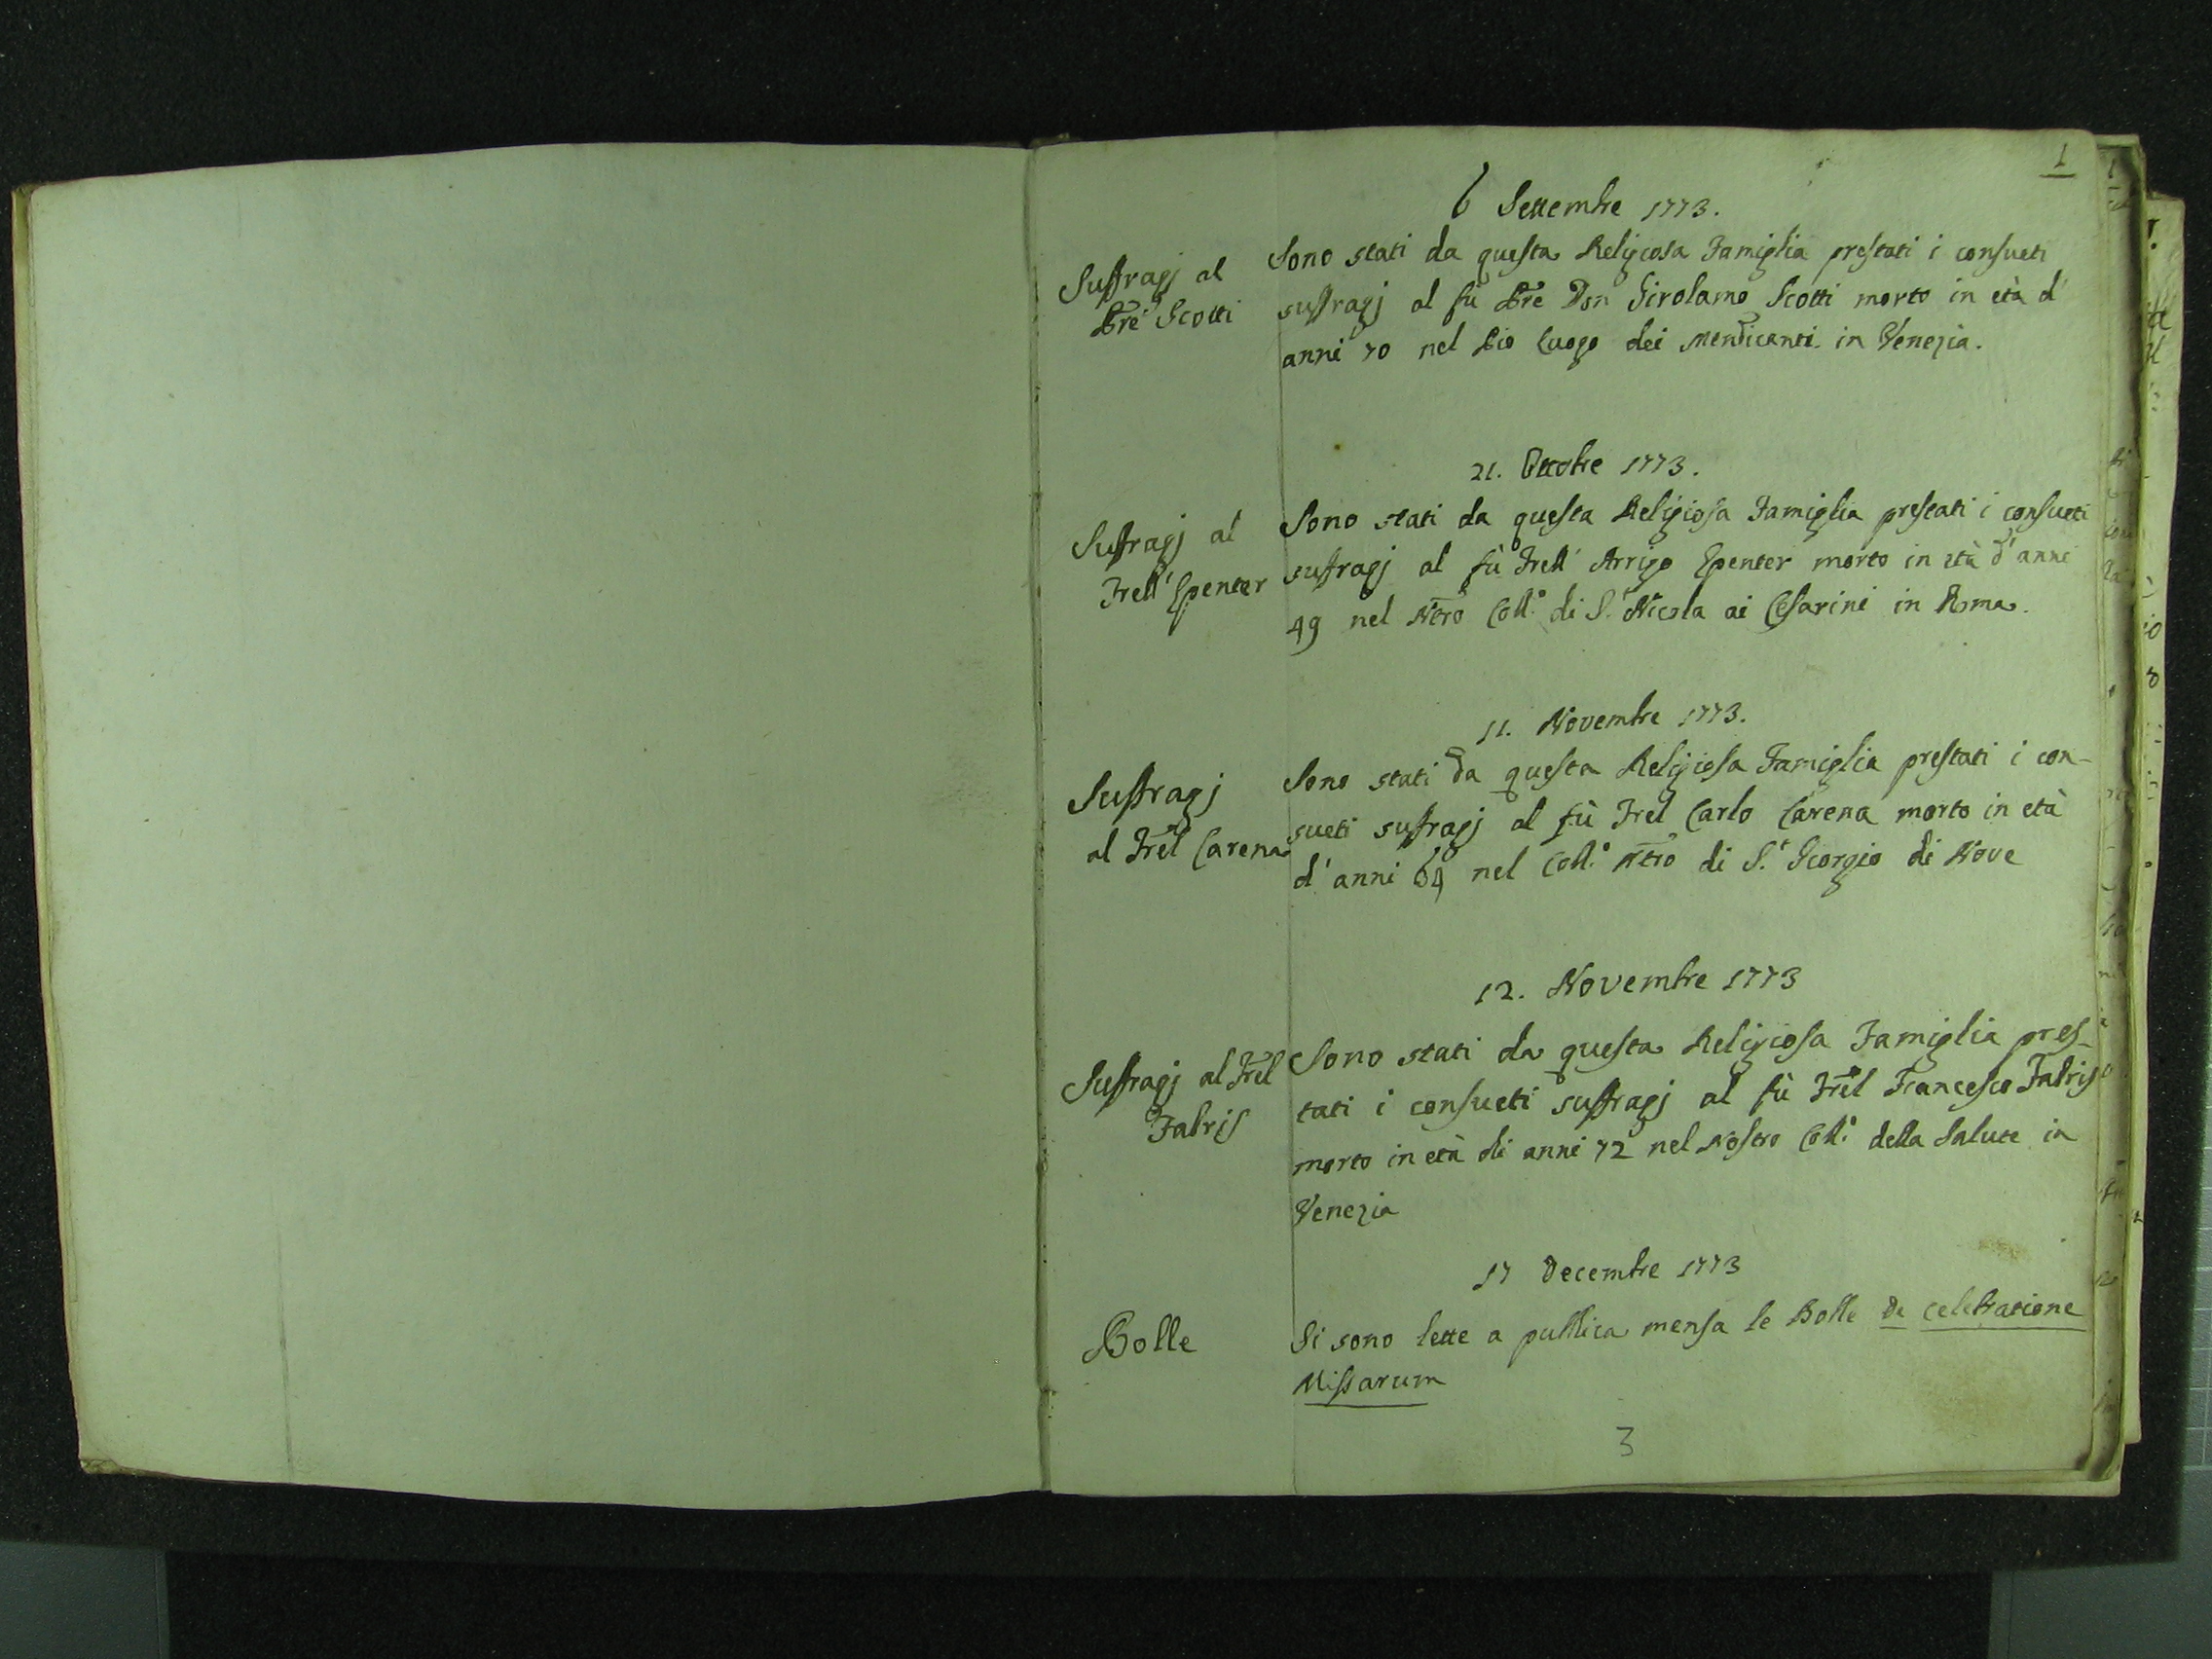 1
6 Settembre 1773.
Suffragj al
Pre Scotti
Sono stati da questa Religiosa Famiglia prestati i consueti
suffragj al fù Pre Don Girolamo Scotti morto in età d'
anni 70 nel Pio Luogo dei Mendicanti in Venezia.
21. Ottobre 1773.
Suffragj al
Frell' Epenter
Sono stati da questa Religiosa Famiglia prestati i consueti
suffragj al fù Frell' Arrigo Epenter morto in età d'anni
49 nel Ntro Coll.º di S. Nicola ai Cesarini in Roma.
11. Novembre 1773.
Suffragj
al Frel Carena
Sono stati da questa Religiosa Famiglia prestati i con-
sueti suffragj al fù Frel Carlo Carena morto in età
d'anni 64 nel Coll.º ntro di S. Giorgio di Nove
12. Novembre 1773
Suffragj al Frel
Fabris
Sono stati da questa Religiosa Famiglia pres-
tati i consueti suffragj al fù Frel Francesco Fabris
morto in età di anni 72 nel Nostro Coll.º della Salute in
Venezia
17 Decembre 1773
Bolle
Si sono lette a publica mensa le Bolle de celebratione
Missarum
3